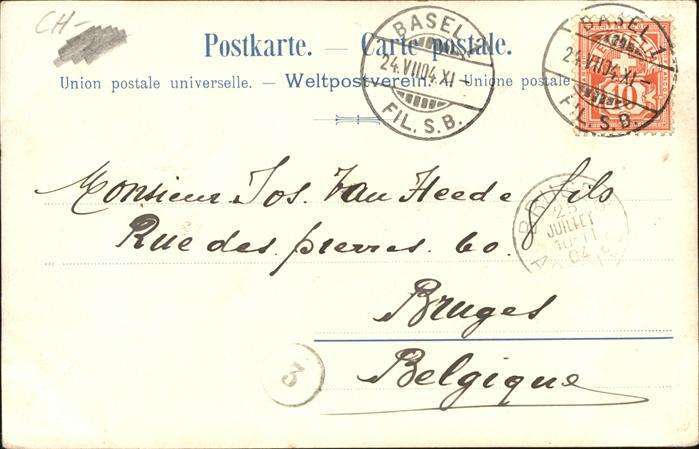 CH-
Postkarte. — Carte postale.
Union postale universelle. — Weltpostverein. — Unione postale
BASEL 1
24.VII.04.XI-
FIL. S. B.
BASEL 1
24.VII.04.XI-
FIL. S. B.
10
Monsieur Jos. Van Heede fils
Rue des pierres 60.
JUILLET
04
Bruges
Belgique
3